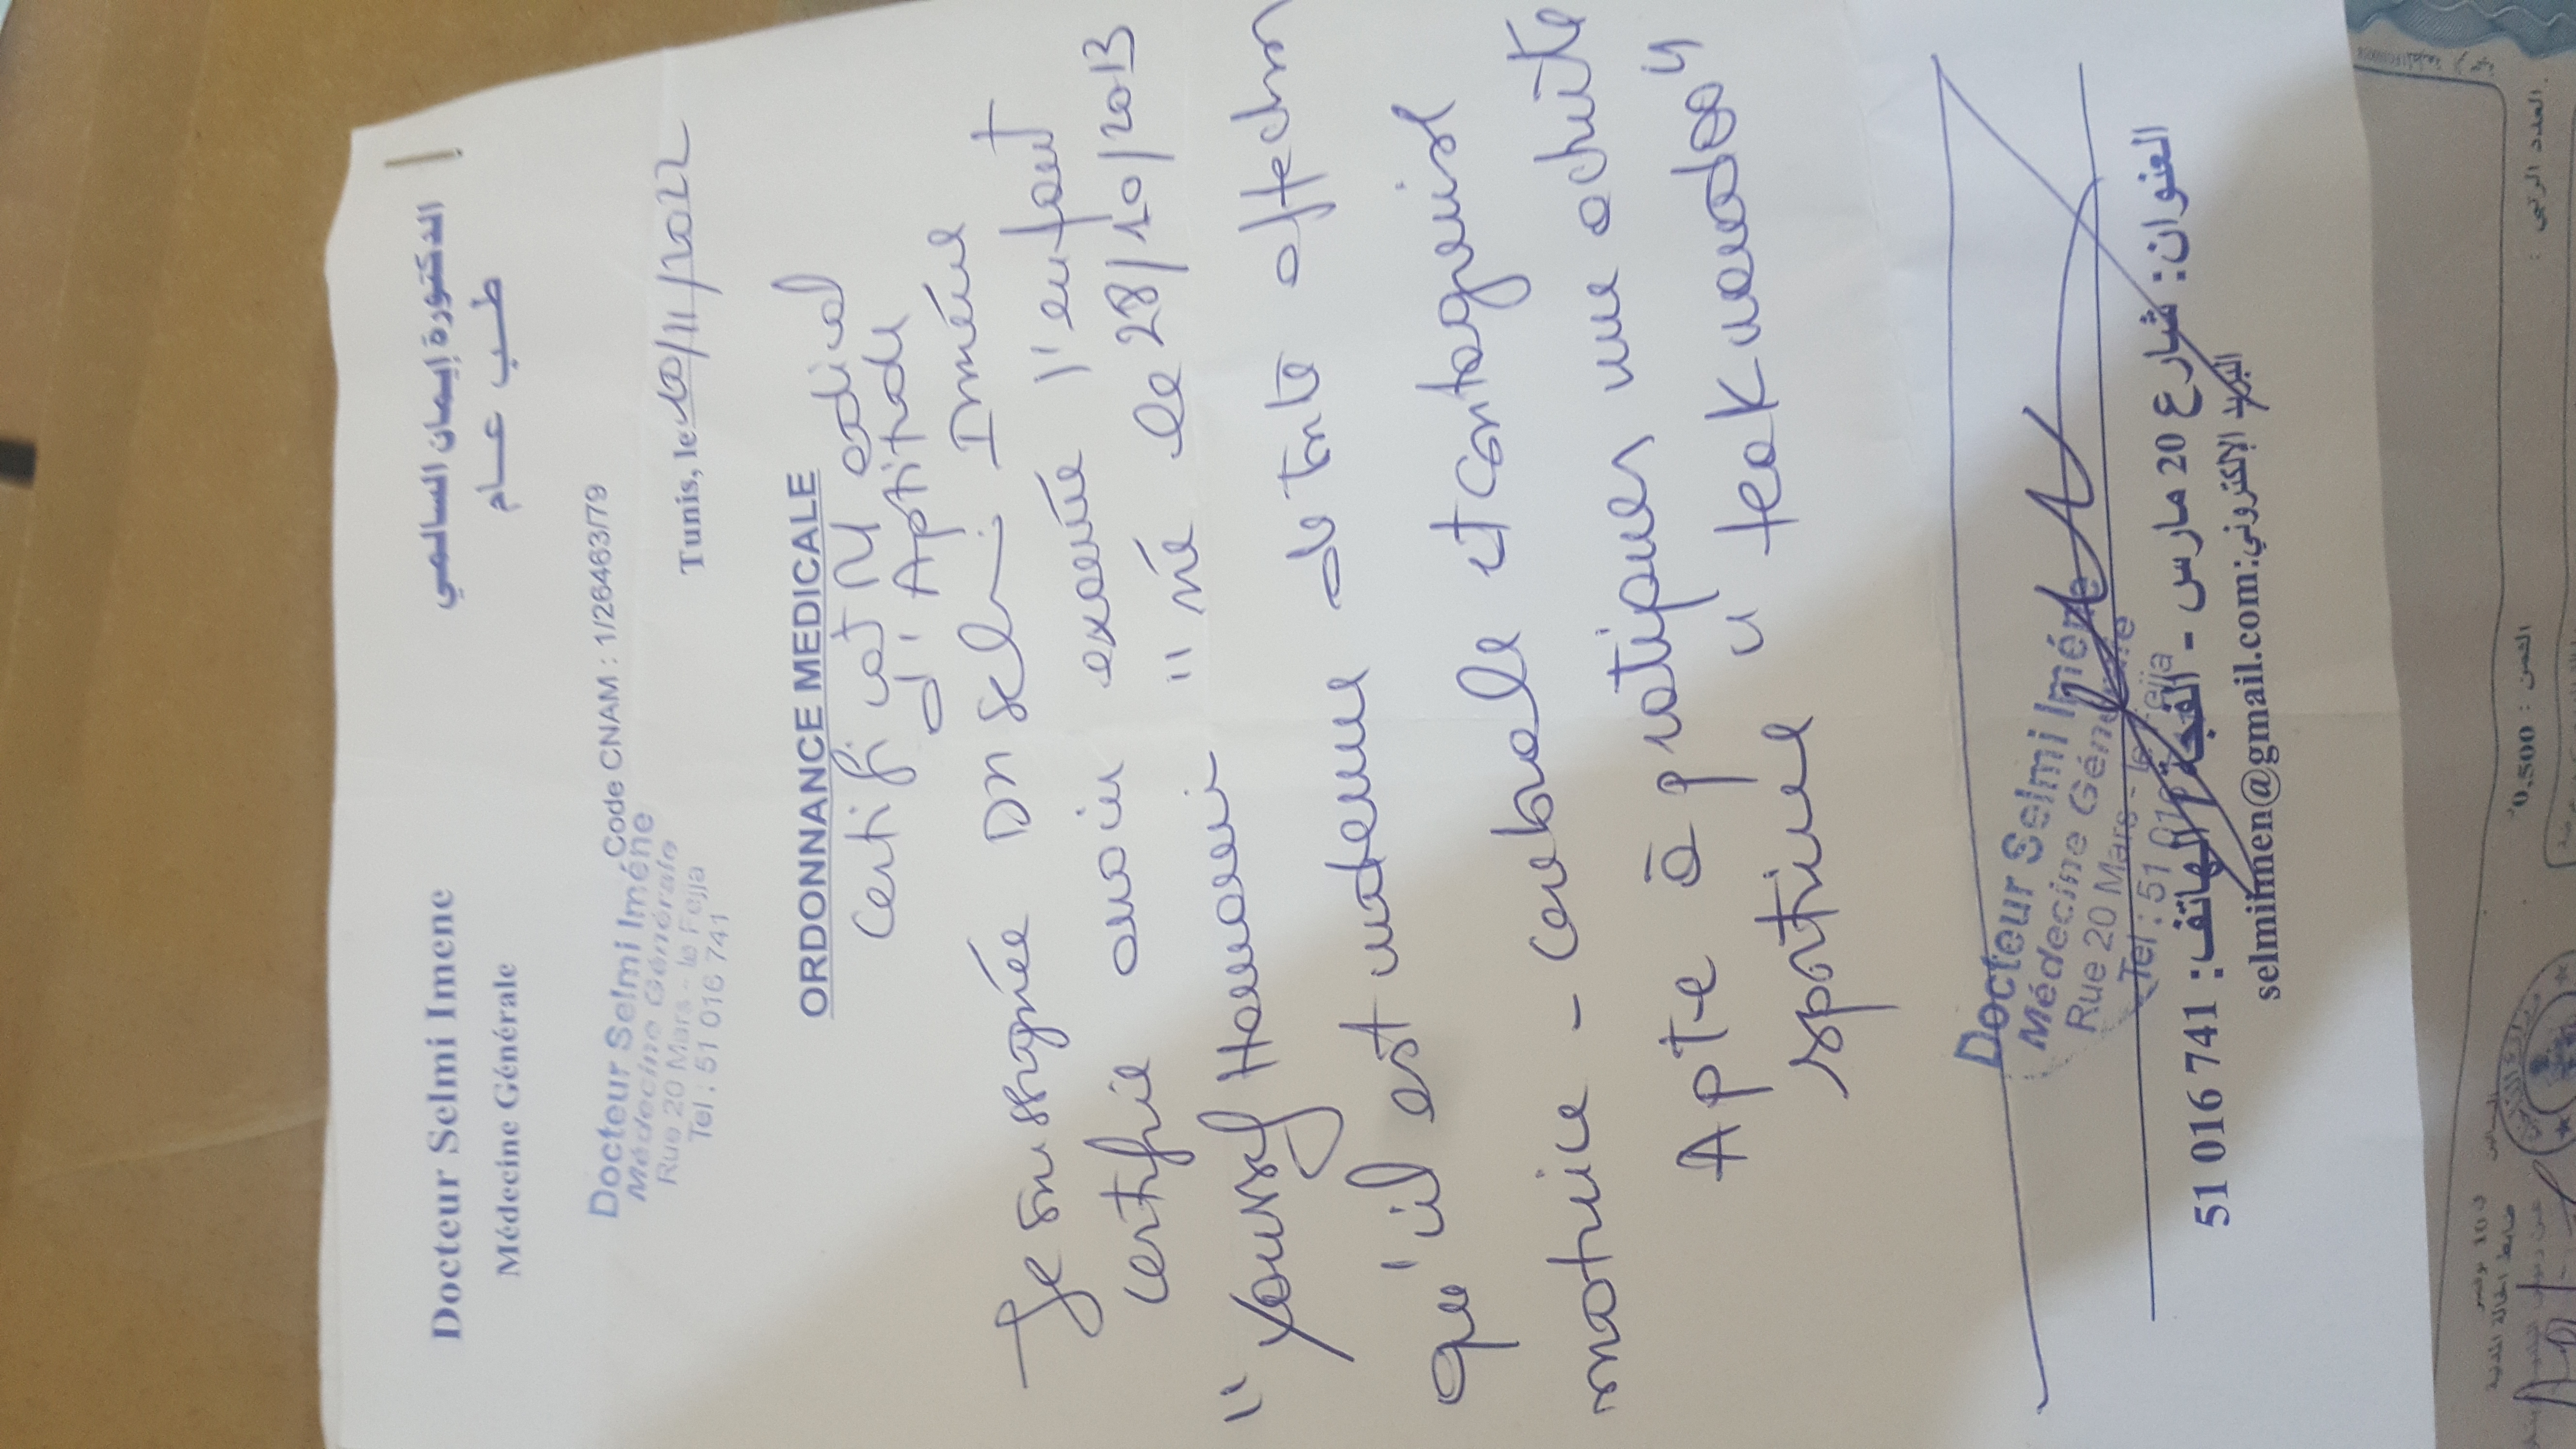 Docteur Selmi Imene
الدكتورة إيمان السالمي
Médecine Générale
طب عام
Code CNAM : 1/26463/79
Docteur Selmi Iméne
Médecine Générale
Rue 20 Mars - le Fejja
Tel : 51 016 741
Tunis, le 10/11/2022
ORDONNANCE MEDICALE
Certificat Médical
d'Aptitude
Je soussignée Dr Selmi Iméne
certifie avoir examiné l'enfant
"Youssef Hamami" né le 28/10/2013
qu'il est indemne de toute affection
motrice - cérébrale et contagieuse
Apte à pratiquer une activité
sportive "teakwondo"
Docteur Selmi Iméne
Médecine Générale
Rue 20 Mars - le Fejja
Tel : 51 016
العنوان: شارع 20 مارس - الفجة - الهاتف: 51 016 741
البريد الإلكتروني: selmiimen@gmail.com
العدد الرتبي :
الثمن : 0,500